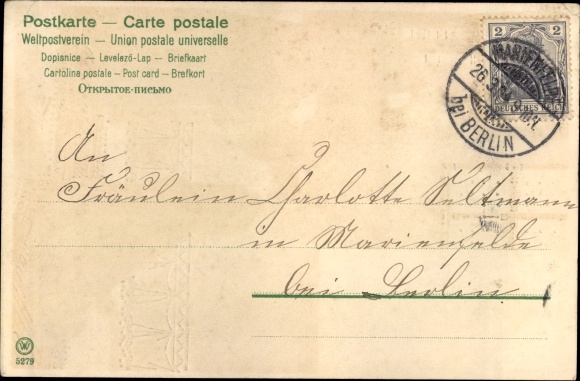 Postkarte — Carte postale
Weltpostverein — Union postale universelle
Dopisnice — Levelező-Lap — Briefkaart
Cartolina postale — Post card — Brefkort
Открытое-письмо
2 2
DEUTSCHES REICH
MARIENFELDE
26.3.
bei BERLIN
An
Fräulein Charlotte Seltmann
in Marienfelde
bei Berlin
5279